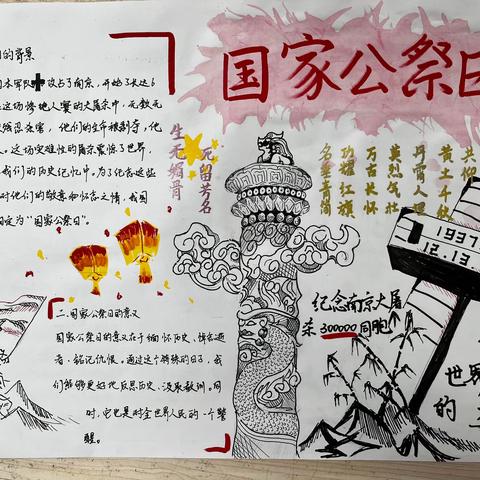 国家公祭日
的背景
日本军队攻占了南京，开始了长达6
这场惨绝人寰的大屠杀中，无数无
残忍杀害，他们的生命被剥夺，他
。这场灾难性的屠杀震惊了世界，
我们的历史记忆中。为了纪念这些
对他们的敬意和怀念之情，我国
定为“国家公祭日”。
生无媚骨
死留芳名
共仰
黄土千秋
丹霄人
英烈气壮
万古长怀
功耀红旗
名垂青简
1937
12.13
纪念南京大屠
杀300000同胞
二、国家公祭日的意义
国家公祭日的意义在于缅怀历史、悼念逝
者、铭记仇恨。通过这个特殊的日子，我
们能够更好地反思历史、汲取教训。同
时，它也是对全世界人民的一个警
醒。
世界
的